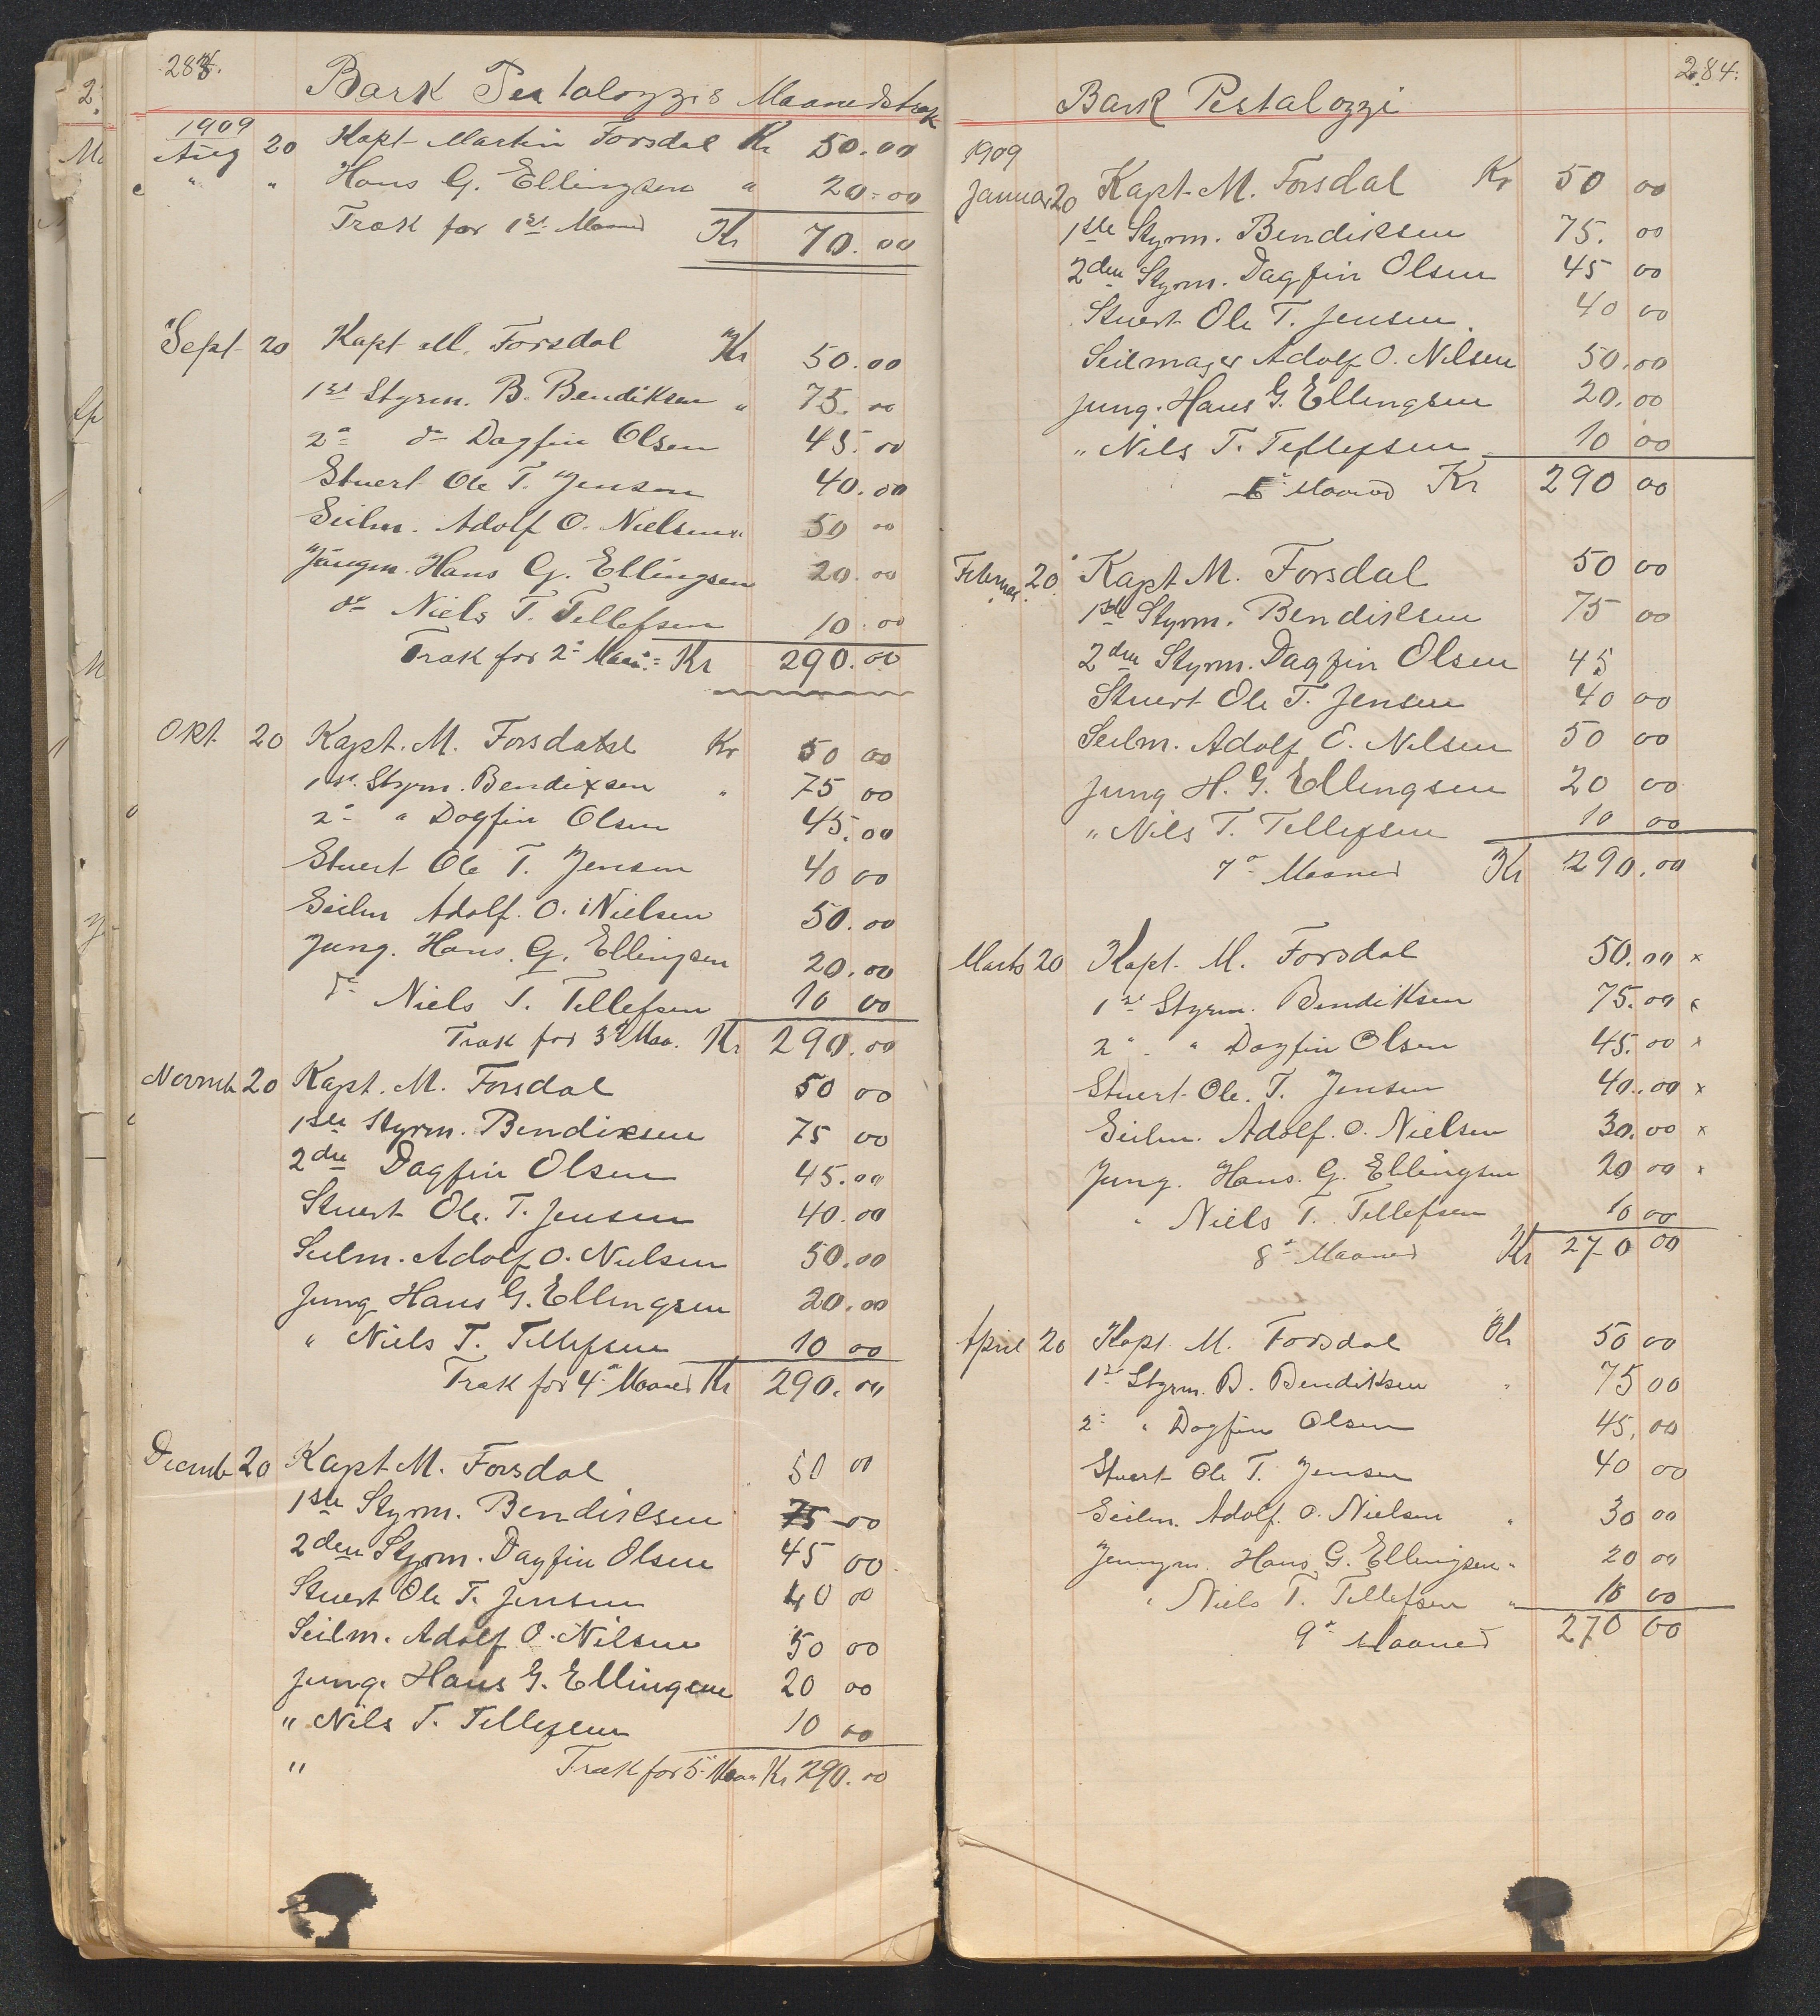 284.
Bark Pestalozzis Maanedstræk
1909
Aug 20 Kapt Martin Forsdal Kr 50.00
" " Hans G. Ellingsen " 20.00
Træk for 1st. Maaned Kr 70.00
Sept 20 Kapt M. Forsdal Kr 50.00
1st Styrm. B. Bendiksen " 75.00
2= do Dagfin Olsen 45.00
Stuert Ole T. Jensen 40.00
Seilm. Adolf O. Nielsen " 50 00
Jungm. Hans G. Ellingsen 20.00
do Niels T. Tellefsen 10.00
Træk for 2= Maan. = Kr 290.00
Okt. 20 Kapt. M. Forsdahl Kr 50 00
1st. Styrm. Bendixsen " 75 00
2= " Dagfin Olsen 45.00
Stuert Ole T. Jensen 40 00
Seilm Adolf. O. Nielsen 50.00
Jung. Hans. G. Ellingsen 20.00
do Niels T. Tellefsen 10 00
Træk for 3= Maa. Kr 290.00
Novmb 20 Kapt. M. Forsdal 50 00
1ste Styrm. Bendiksen 75 00
2den Dagfin Olsen 45.00
Stuert Ole. T. Jensen 40.00
Seilm. Adolf O. Nielsen 50.00
Jung Hans G. Ellingsen 20.00
" Niels T. Tellefsen 10 00
Træk for 4= Maaned Kr 290.00
Decmb 20 Kapt M. Forsdal 50 00
1ste Styrm. Bendiksen 75 00
2den Styrm. Dagfin Olsen 45 00
Stuert Ole T. Jensen 40 00
Seilm. Adolf O. Nilsen 50 00
Jung. Hans G. Ellingsen 20 00
" Nils T. Tellefsen 10 00
" Træk for 5= Maa Kr 290.00
284.
Bark Pestalozzi
1909
Januar 20 Kapt. M. Forsdal Kr 50 00
1ste Styrm. Bendiksen 75. 00
2den Styrm. Dagfin Olsen 45 00
Stuert Ole T. Jensen. 40 00
Seilmager Adolf O. Nilsen 50.00
Jung. Hans G. Ellingsen 20.00
" Nils T. Tellefsen 10 00
6= Maaned Kr 290 00
Februar 20. Kapt M. Forsdal 50 00
1ste Styrm. Bendiksen 75 00
2den Styrm. Dagfin Olsen 45
Stuert Ole T. Jensen 40 00
Seilm. Adolf O. Nilsen 50 00
Jung H. G. Ellingsen 20 00
" Nils T. Tellefsen 10 00
7= Maaned Kr 290.00
Marts 20 Kapt. M. Forsdal 50.00 x
1st Styrm. Bendiksen 75.00 x
2= " Dagfin Olsen 45.00 x
Stuert Ole. T. Jensen 40.00 x
Seilm. Adolf. O. Nielsen 30.00 x
Jung. Hans. G. Ellingsen 20 00 x
" Niels T. Tellefsen 10 00
8= Maaned Kr 270 00
April 20 Kapt M. Forsdal Kr 50 00
1st Styrm. B. Bendiksen " 75 00
2= " Dagfin Olsen 45.00
Stuert Ole T. Jensen 40 00
Seilm. Adolf. O. Nielsen " 30 00
Jungm. Hans G. Ellingsen " 20 00
" Niels T. Tellefsen " 10 00
9= Maaned 270 00